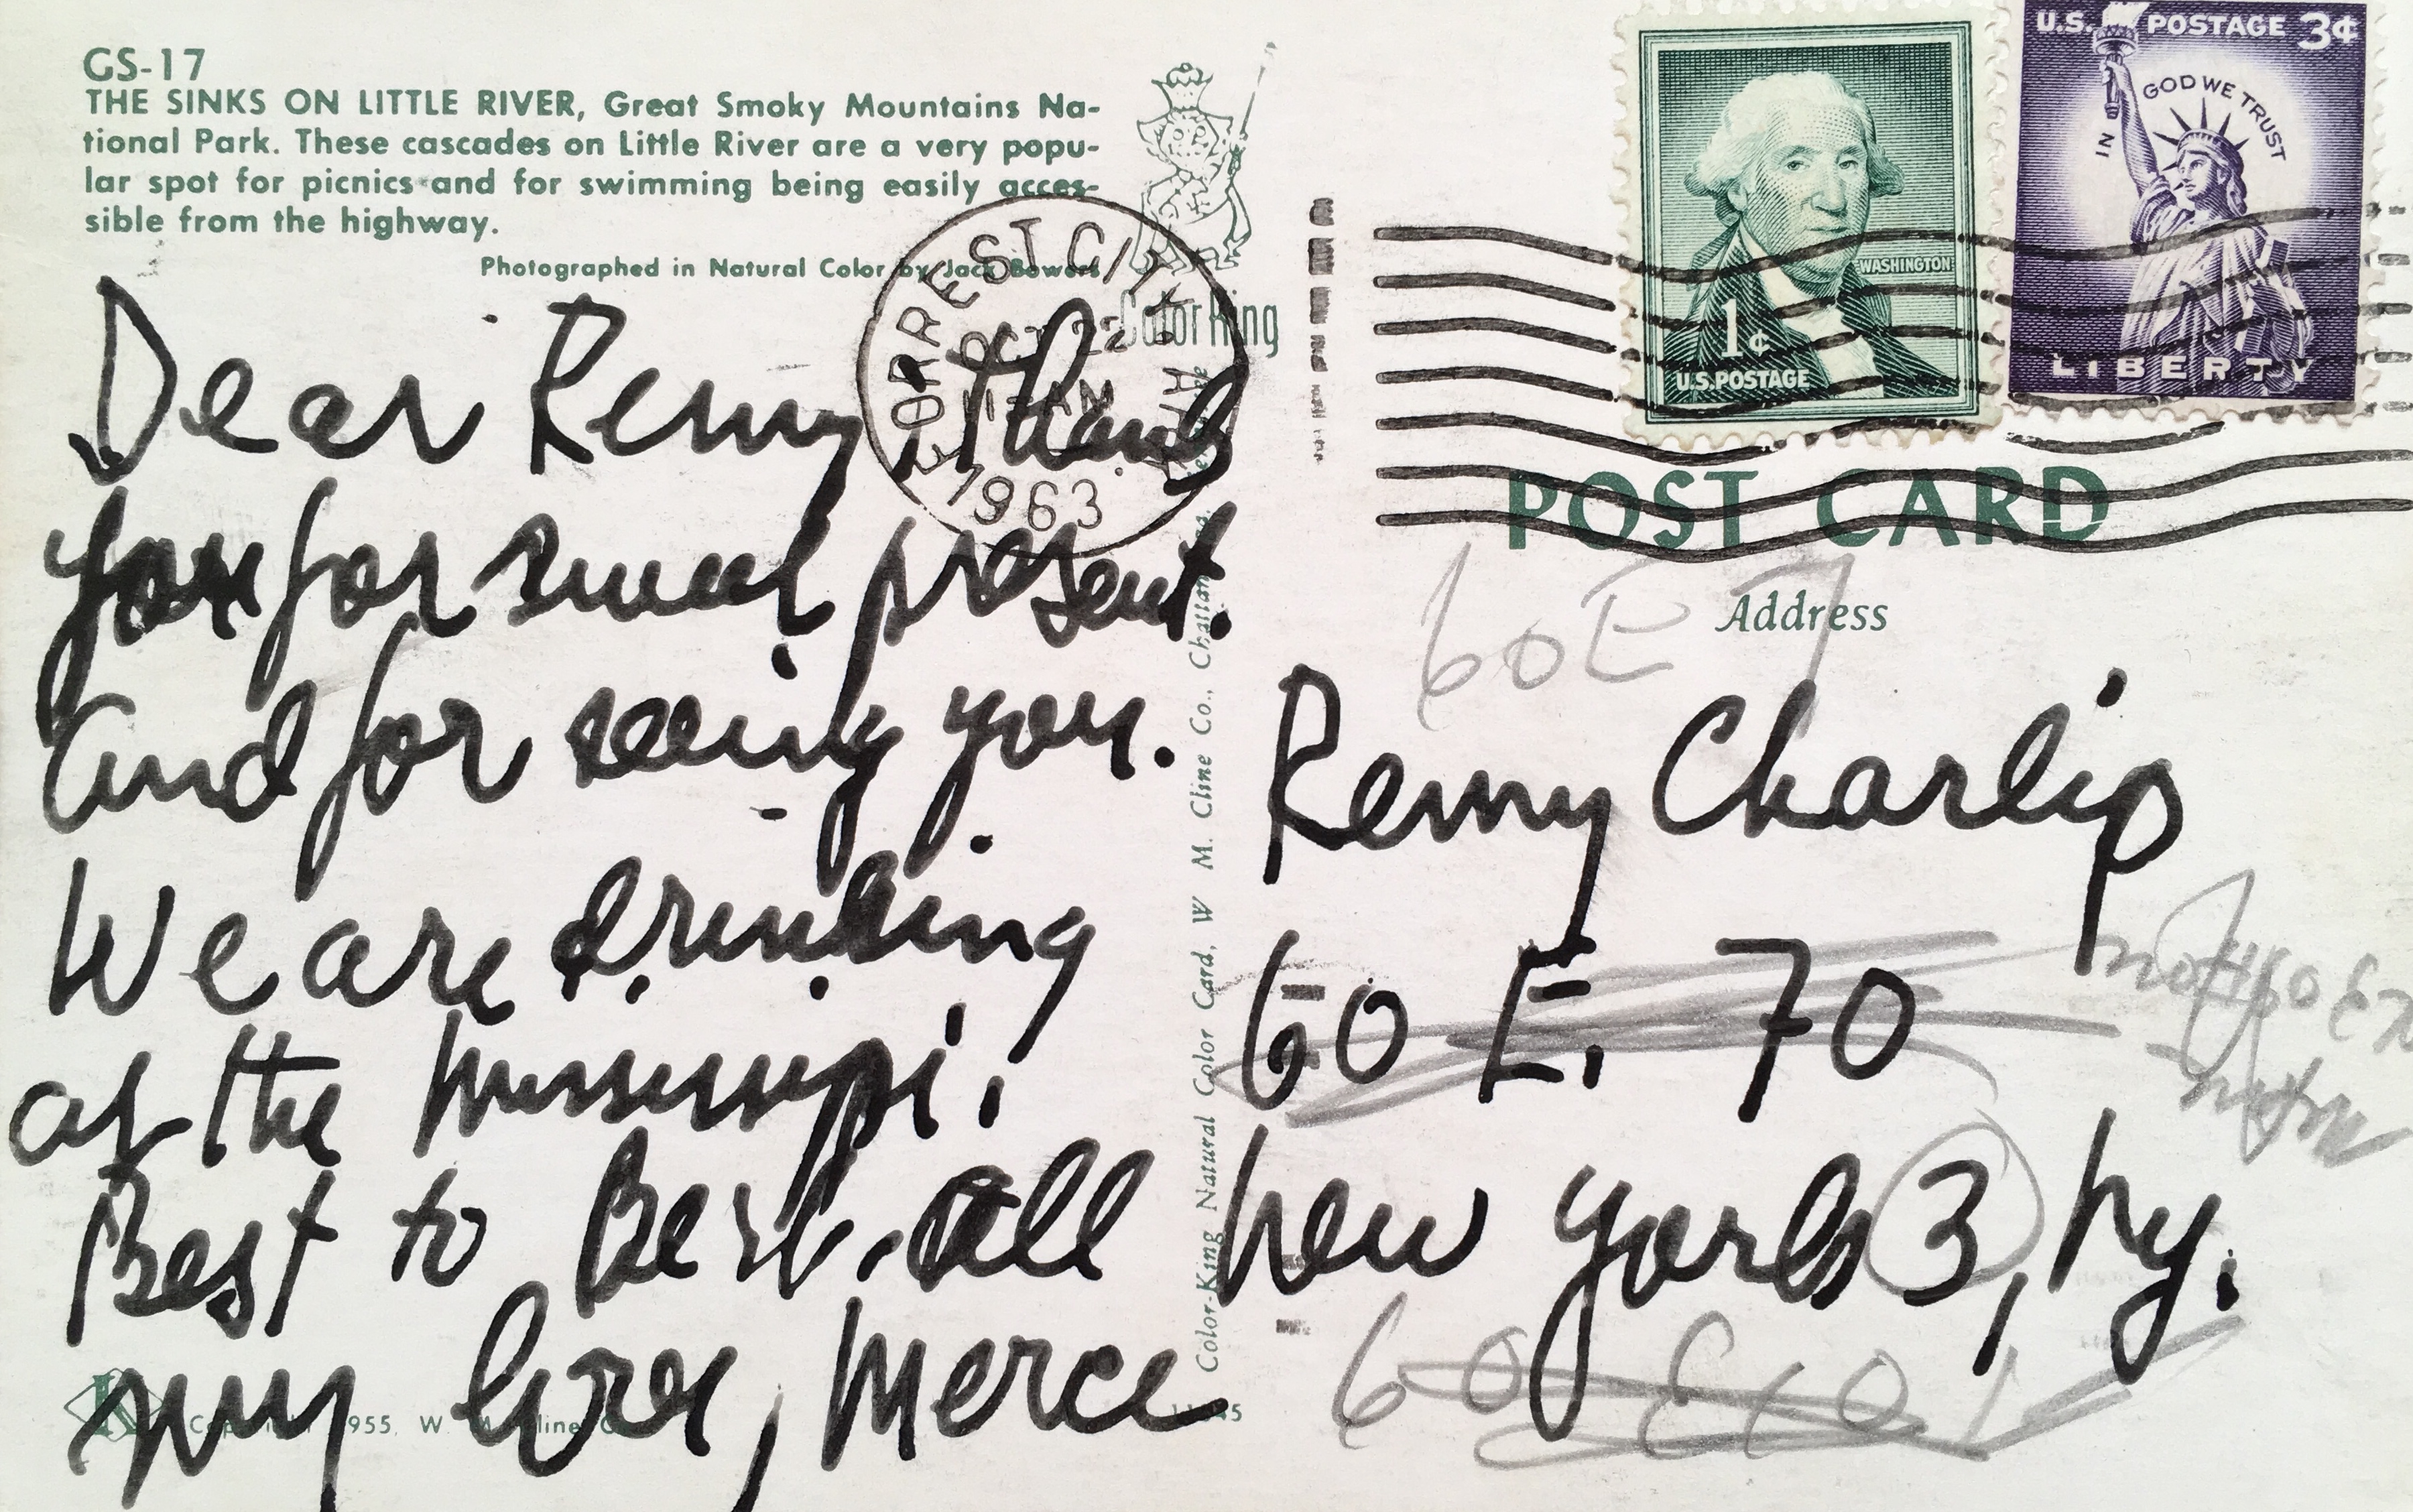 GS-17
THE SINKS ON LITTLE RIVER, Great Smoky Mountains Na-
tional Park. These cascades on Little River are a very popu-
lar spot for picnics and for swimming being easily acces-
sible from the highway.
Photographed in Natural Color by Jack Bowers
Color King
FORREST CITY
OCT 22
11 AM
1963
ARK
Dear Remy, Thank
you for sweet present.
And for seeing you.
We are drinking
of the Mississipi.
Best to Bert. All
my love, Merce
Color-King Natural Color Card, W. M. Cline Co., Chattanooga, Tennessee
Copyright 1955, W. M. Cline Co.
U.S. POSTAGE 3¢
IN GOD WE TRUST
LIBERTY
WASHINGTON
1¢
U.S. POSTAGE
POST CARD
Address
60 E 7
Remy Charlip
60 E. 70
New York 3, N.Y.
60 E 10